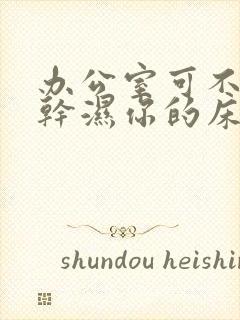 办公室可不
幹濕你的床
shundou heishin